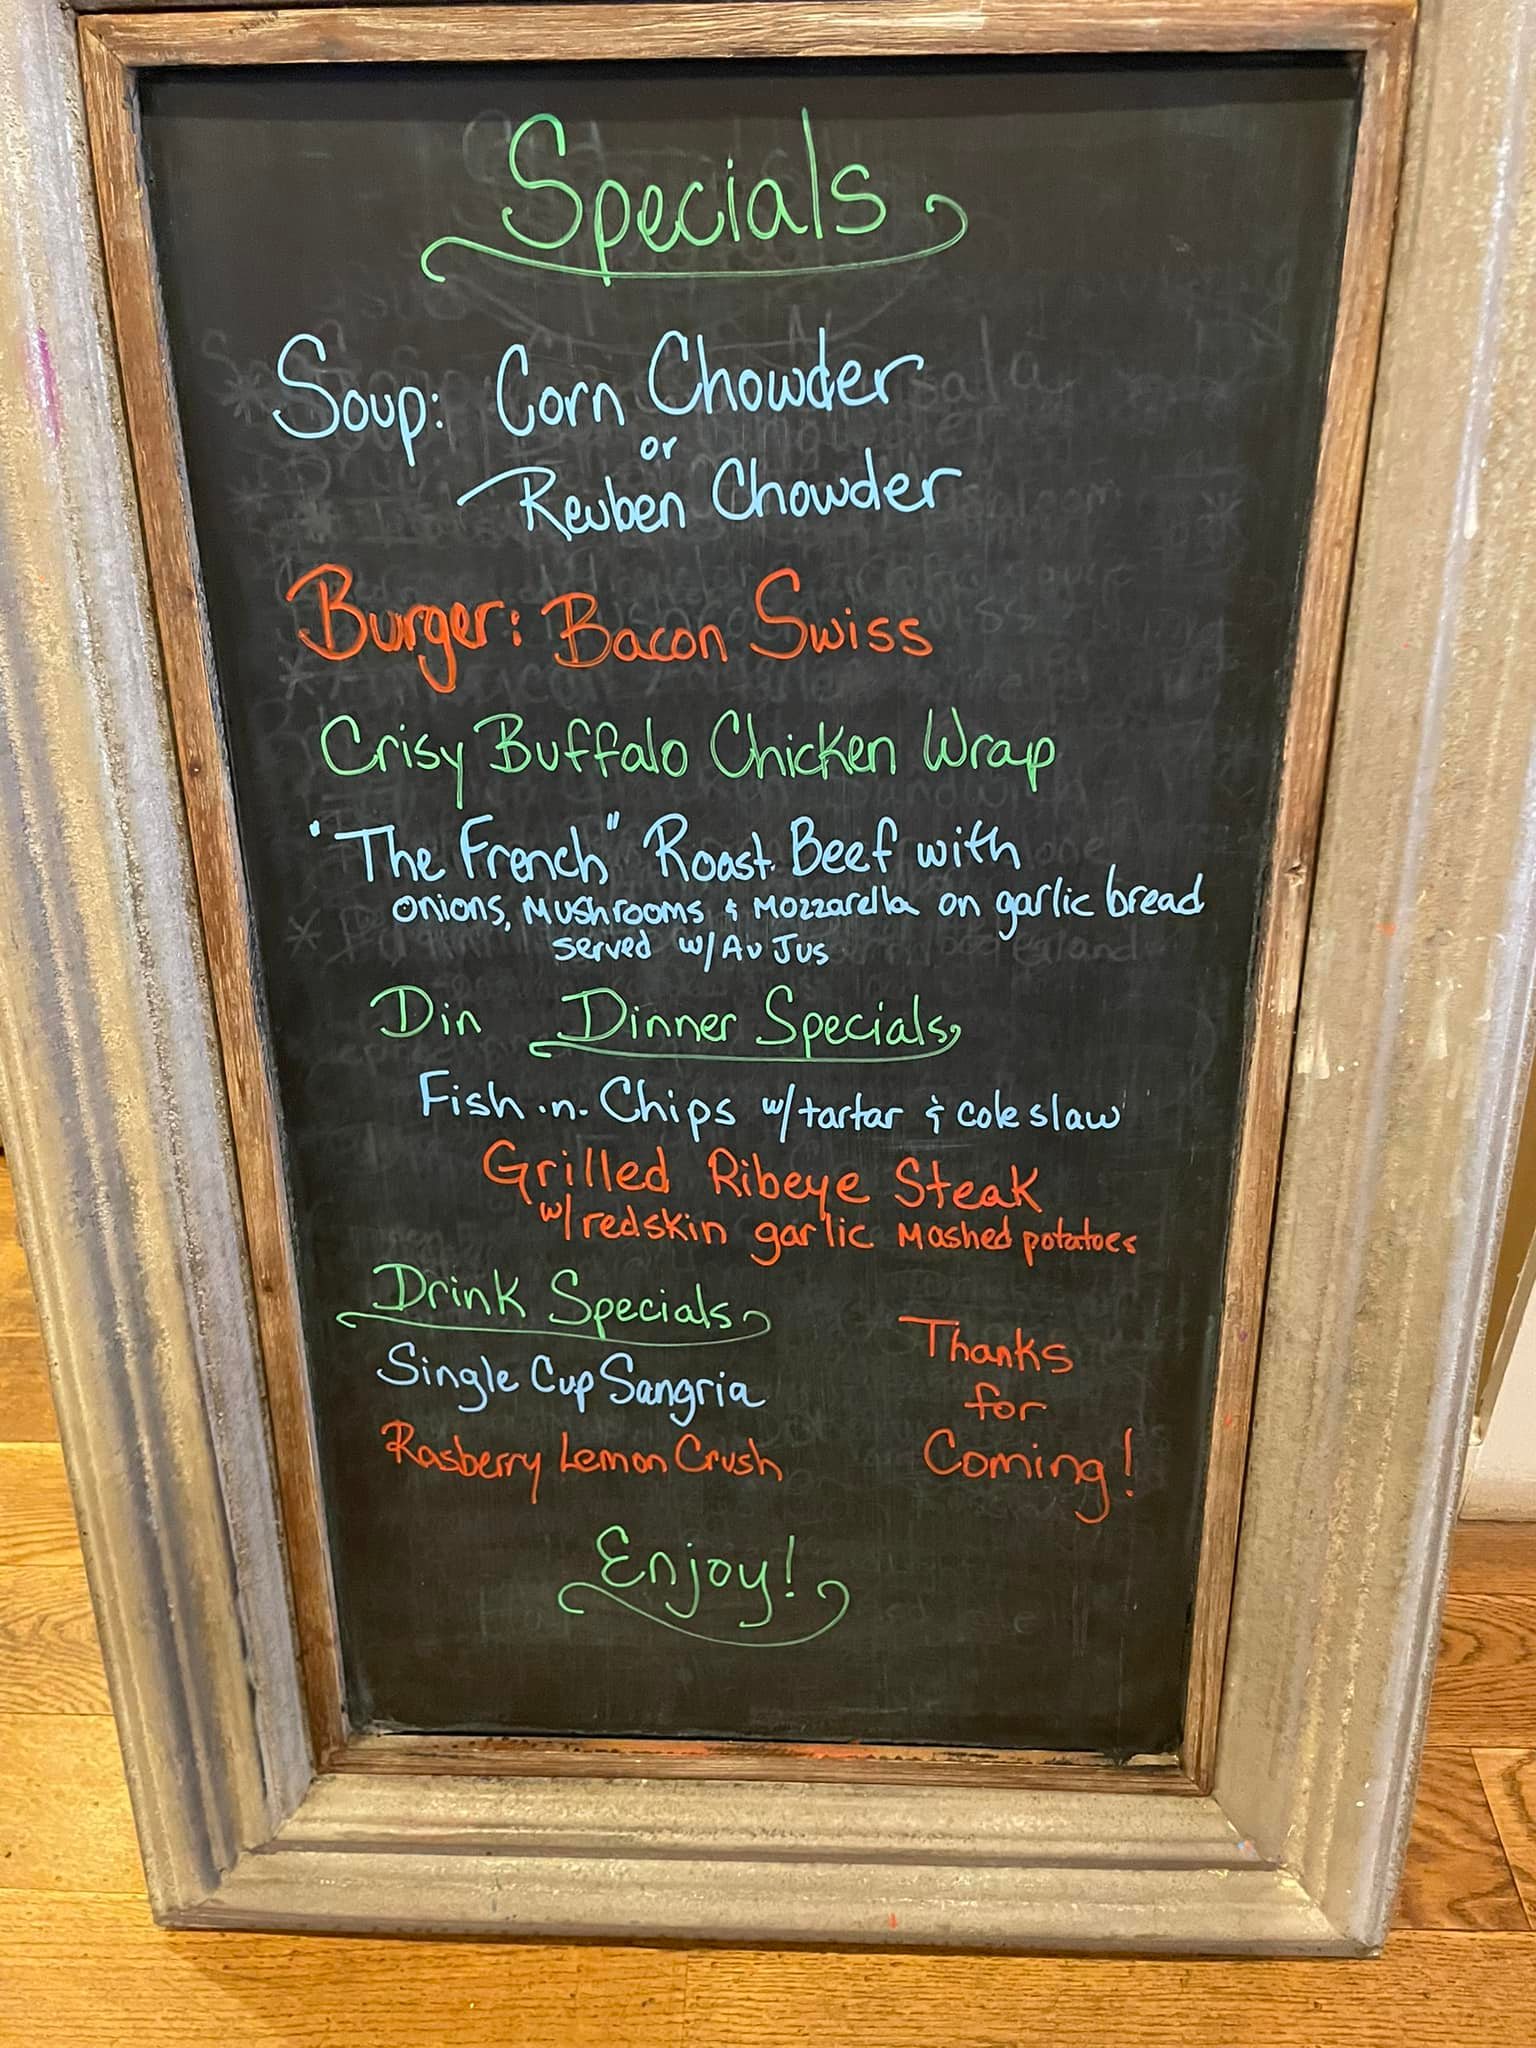 Specials
Soup: Corn Chowder
or
Reuben Chowder
Burger: Bacon Swiss
Crisy Buffalo Chicken Wrap
"The French" Roast Beef with
onions, mushrooms & mozzarella on garlic bread
served w/ Au Jus
Din Dinner Specials
Fish -n- Chips w/ tartar & coleslaw
Grilled Ribeye Steak
w/ redskin garlic mashed potatoes
Drink Specials
Single Cup Sangria
Rasberry Lemon Crush
Thanks
for
Coming!
Enjoy!